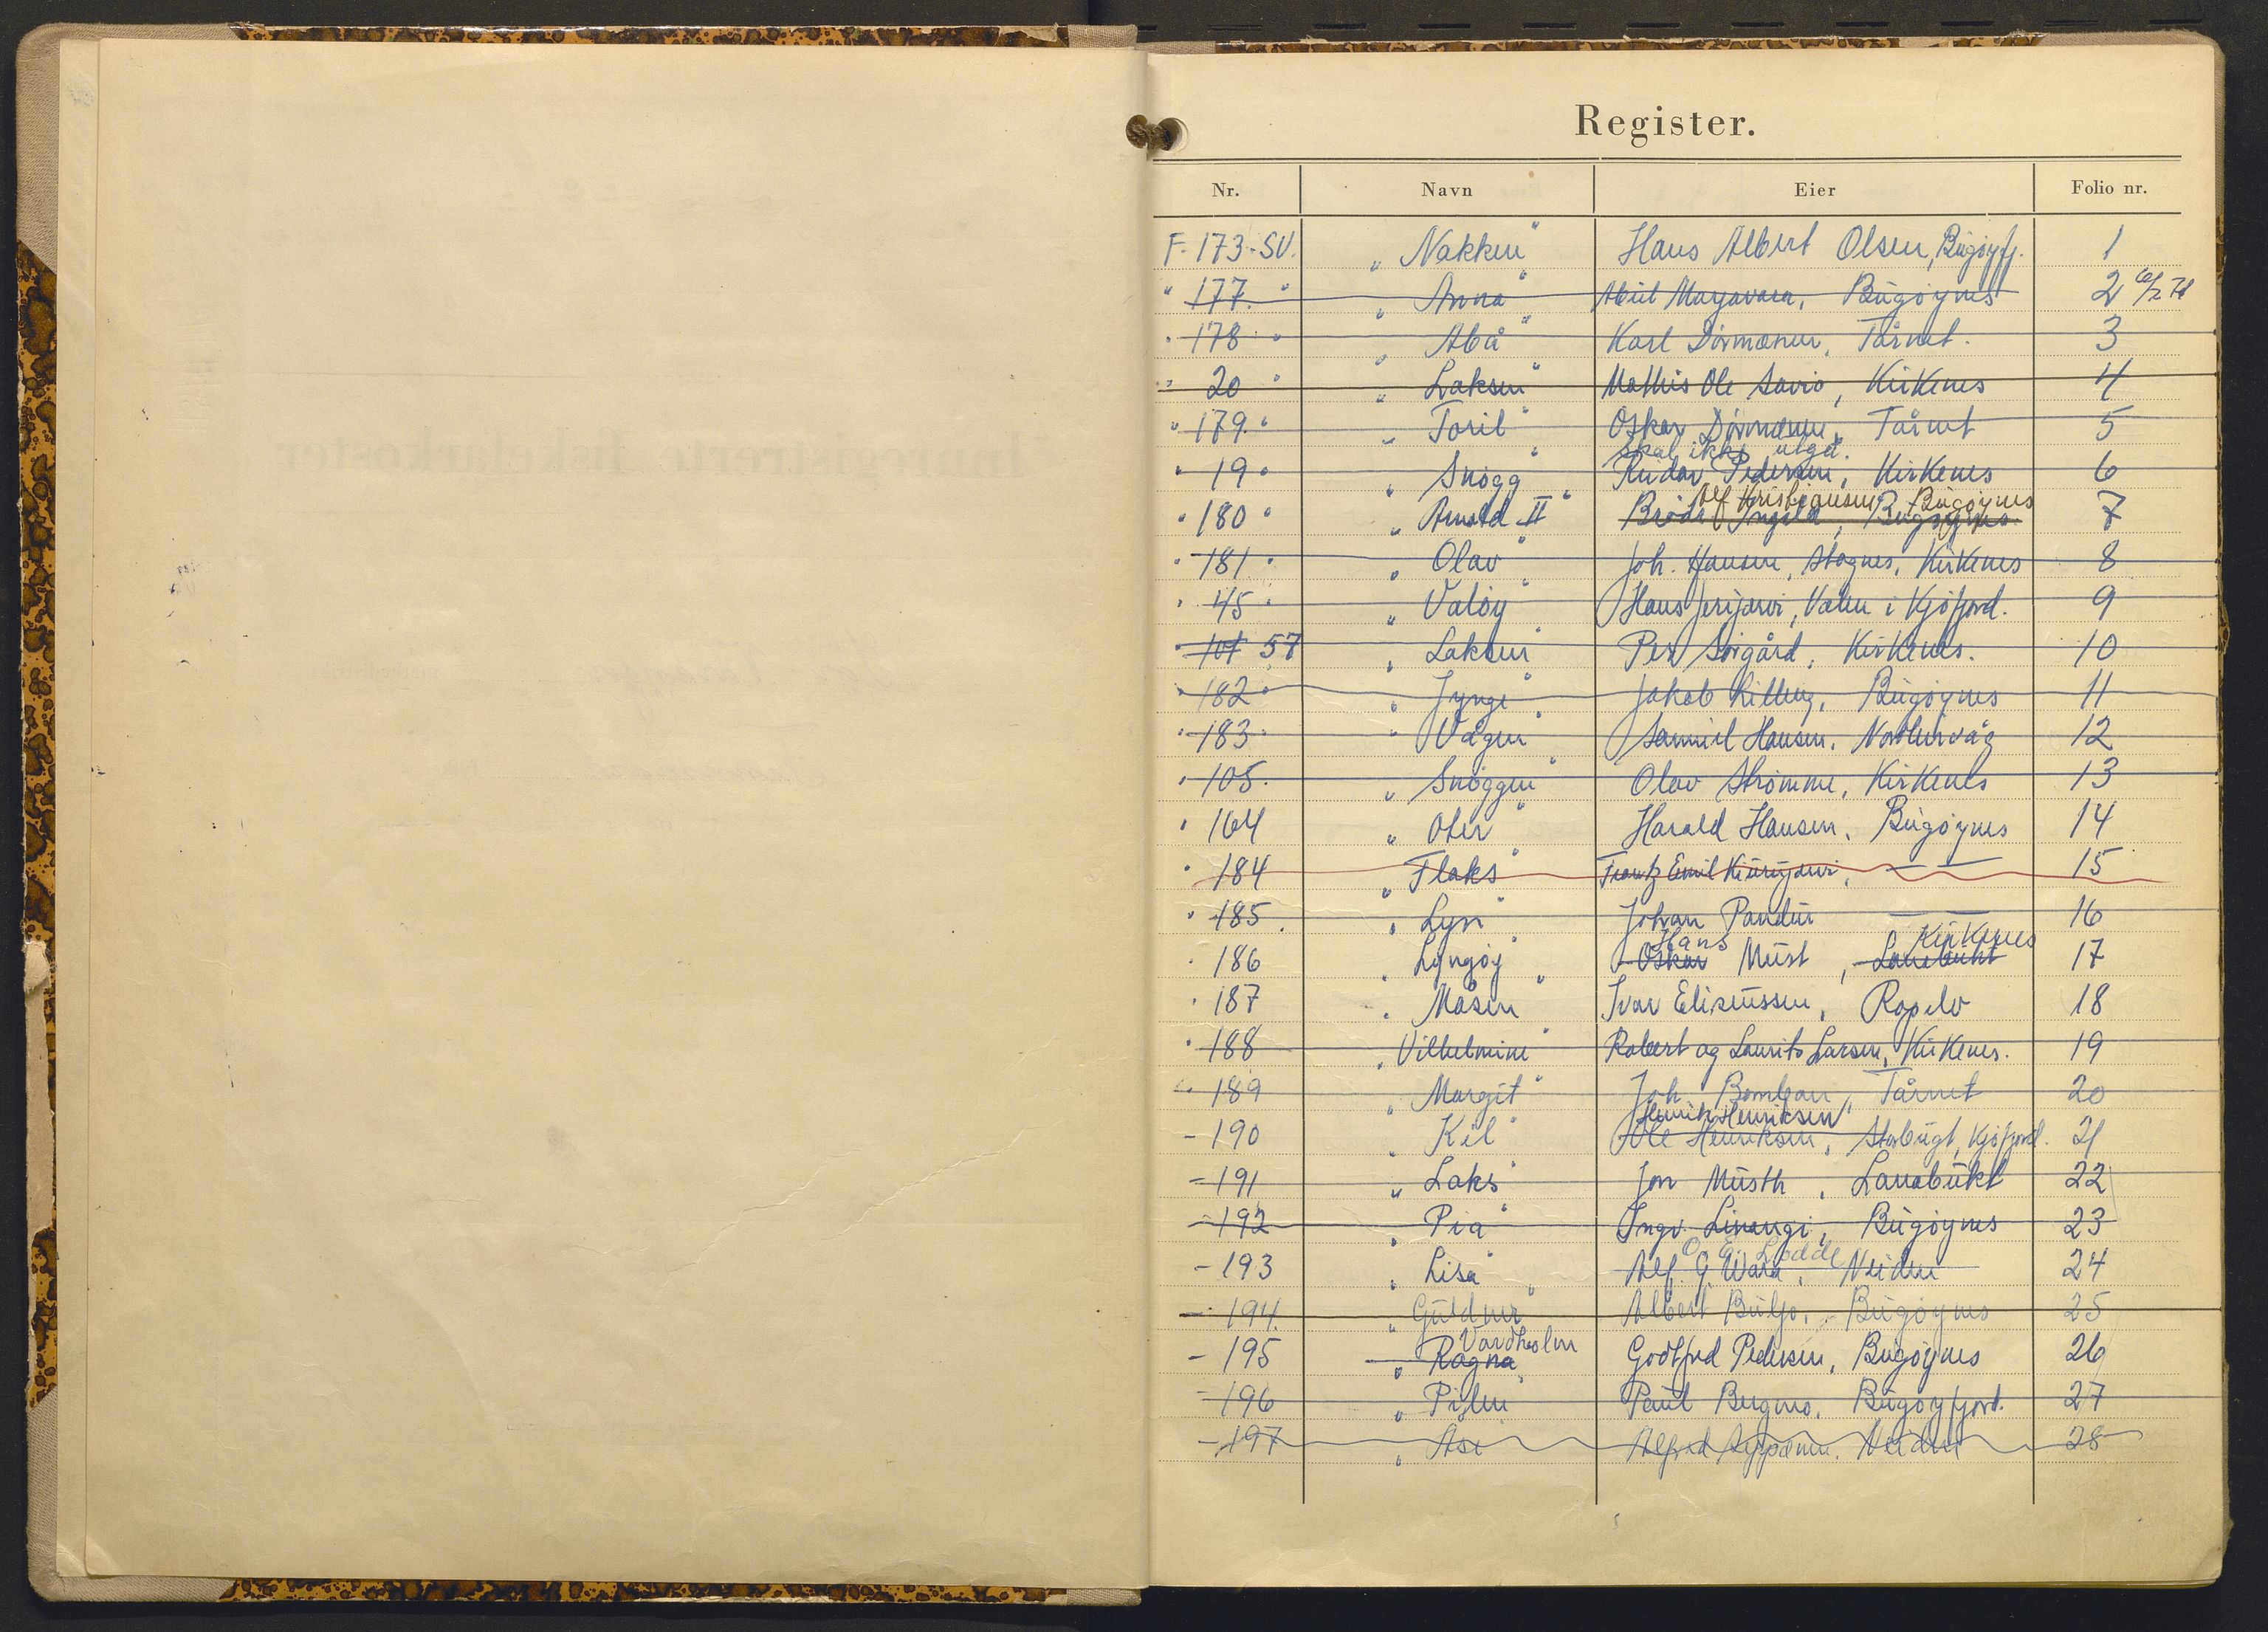 Register.
Nr. Navn Eier Folio nr.
F. 173-SV. „Nakken" Hans Albert Olsen, Bugøyfj. 1
" 177. " „Anna" Majavara, Bugøynes 2
" 178 " „Abå" Karl Dørmænen, Tårnet. 3
" 20 " „Laksen" Mathis Ole Savio, Kirkenes 4
" 179. " „Toril" Oskar Dørmænen, Tårnet 5
skal ikke utgå.
" 19 " „Snøgg" Reidar Pedersen, Kirkenes 6
Alf Kristiansen, Bugøynes
" 180 " „Arnold II" Brødr. Ingilæ, Bugøynes. 7
" 181 " „Olav" Joh. Hansen, Stagnes, Kirkenes 8
" 45 " „Valøy" Hans Jerijærvi, Valen i Kjøfjord. 9
" 101 57 „Laksen" Per Sørgård, Kirkenes. 10
" 182 " „Jynge" Jakob Lilleng, Bugøynes 11
" 183 " „Vågen" Samuel Hansen, Nordlervåg 12
" 105. „Snøggen" Olav Strømme, Kirkenes 13
" 164 „Oter" Harald Hansen, Bugøynes 14
" 184 „Flaks" Frantz Emil Kiærijærvi, — — 15
" 185. „Lyn" Johan Pandur — — 16
Hans Kirkenes
" 186 „Lyngøy" Oskar Must, Lanabukt 17
" 187 „Måsen" Ivar Eliseussen, Ropelv 18
" 188 „Vilhelmine" Robert og Laurits Larsen, Kirkenes. 19
" 189 „Margit" Joh. Bomban, Tårnet 20
Henrik Henriksen
- 190 „Kil" Ole Henriksen, Storbugt, Kjøfjord. 21
- 191 „Laks" Jon Musth, Lanabukt 22
- 192 „Pia" Ingv. Linangi, Bugøynes 23
O. E. Lodde
- 193 „Lisa" Alf. G. Wara, Neiden 24
- 194. „Guldner" Albert Buljo, Bugøynes 25
Vardholm
- 195 „Ragna" Godtfred Pedersen, Bugøynes 26
- 196 „Pilen" Paul Bugmo, Bugøyfjord. 27
- 197 „Åse" Alfred Neiden 28